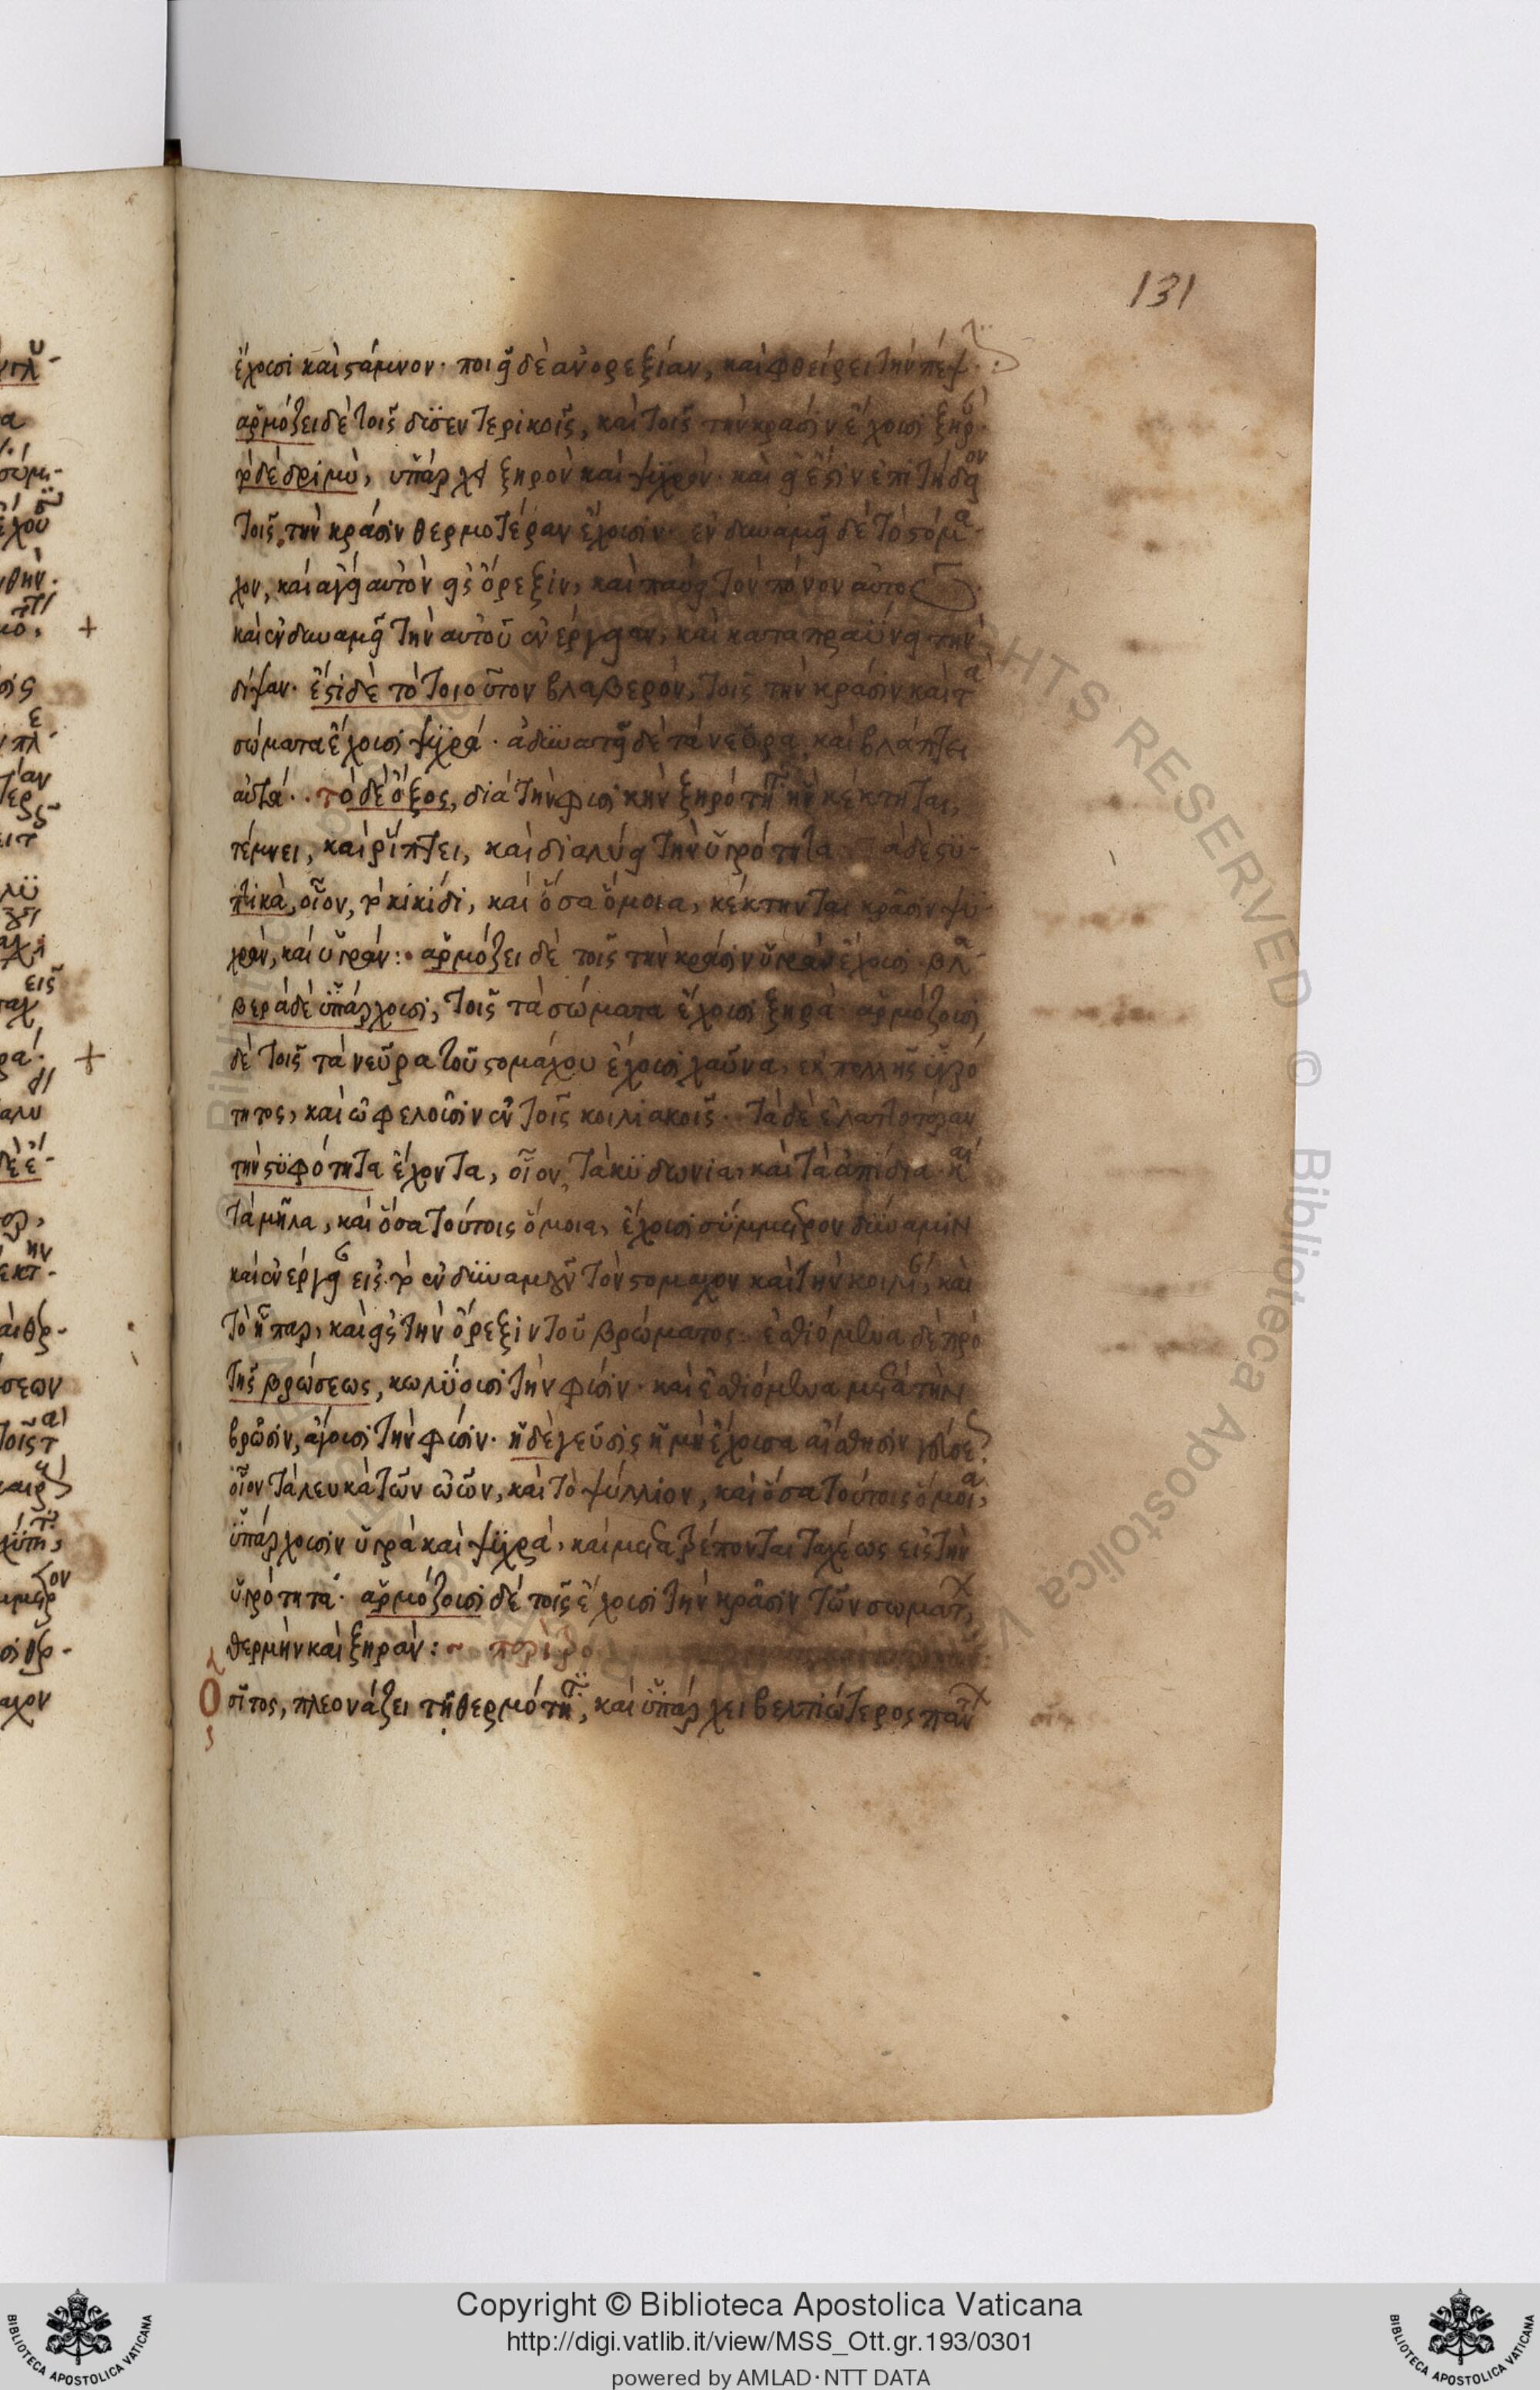 131
ἔχουσι καὶ στάμνον. ποιεῖ δὲ ἀνορεξίαν, καὶ φθείρει τὴν πέψ
ἁρμόζει δὲ τοῖς δυσεντερικοῖς, καὶ τοῖς τὴν κράσιν ἔχουσι ξηρ
τὸ δὲ δριμὺ, ὑπάρχει ξηρὸν καὶ ψυχρόν. καὶ ἔστιν ἐπιτήδειον
τοῖς τὴν κράσιν θερμοτέραν ἔχουσιν. ἐνδυναμεῖ δὲ τὸ στόμα
χον, καὶ ἄγει αὐτὸν εἰς ὄρεξιν, καὶ παύει τὸν πόνον αὐτοῦ
καὶ ἐνδυναμεῖ τὴν αὐτοῦ ἐνέργειαν, καὶ καταπραΰνει τὴν
δίψαν. ἔστι δὲ τὸ τοιοῦτον βλαβερὸν, τοῖς τὴν κράσιν καὶ τὰ
σώματα ἔχουσι ψυχρά. ἀδυνατεῖ δὲ τὰ νεῦρα καὶ βλάπτει
αὐτά. τὸ δὲ ὄξος, διὰ τὴν φυσικὴν ξηρότητα ἣν κέκτηται,
τέμνει, καὶ ῥίπτει, καὶ διαλύει τὴν ὑγρότητα τὰ δὲ στυ
πτικὰ, οἷον, τὸ κικίδι, καὶ ὅσα ὅμοια, κέκτηνται κράσιν ψυ
χρὰν, καὶ ὑγράν: ἁρμόζει δὲ τοῖς τὴν κράσιν ὑγρὰν ἔχουσι βλα
βερὰ δὲ ὑπάρχουσι, τοῖς τὰ σώματα ἔχουσι ξηρά. ἁρμόζουσι
δὲ τοῖς τὰ νεῦρα τοῦ στομάχου ἔχουσι χαῦνα, ἐκ πολλῆς ὑγρό
τητος, καὶ ὠφελοῦσιν ἐν τοῖς κοιλιακοῖς. τὰ δὲ ἐλαττοτέραν
τὴν στυφότητα ἔχοντα, οἷον, τὰ κυδωνία, καὶ τὰ ἀπίδια. καὶ
τὰ μῆλα, καὶ ὅσα τούτοις ὅμοια, ἔχουσι σύμμετρον δύναμιν
καὶ ἐνέργειαν εἰς τὸ ἐνδυναμοῦν τὸν στόμαχον καὶ τὴν κοιλίαν, καὶ
τὸ ἧπαρ, καὶ εἰς τὴν ὄρεξιν τοῦ βρώματος. ἐσθιόμενα δὲ πρὸ
τῆς βρώσεως, κωλύουσι τὴν φύσιν. καὶ ἐσθιόμενα μετὰ τὴν
βρῶσιν, ἄγουσι τὴν φύσιν. ἡ δὲ γεῦσις ἡ μὴ ἔχουσα αἴσθησιν γεύσε
οἷον τὰ λευκὰ τῶν ὠῶν, καὶ τὸ ψύλλιον, καὶ ὅσα τούτοις ὅμοια,
ὑπάρχουσιν ὑγρὰ καὶ ψυχρὰ, καὶ μετατρέπονται ταχέως εἰς τὴν
ὑγρότητα. ἁρμόζουσι δὲ τοῖς ἔχουσι τὴν κράσιν τῶν σωμάτων,
θερμὴν καὶ ξηράν:
Ὁ σῖτος, πλεονάζει τῇ θερμότητι, καὶ ὑπάρχει βελτιώτερος πάντων
Copyright © Biblioteca Apostolica Vaticana
http://digi.vatlib.it/view/MSS_Ott.gr.193/0301
powered by AMLAD·NTT DATA